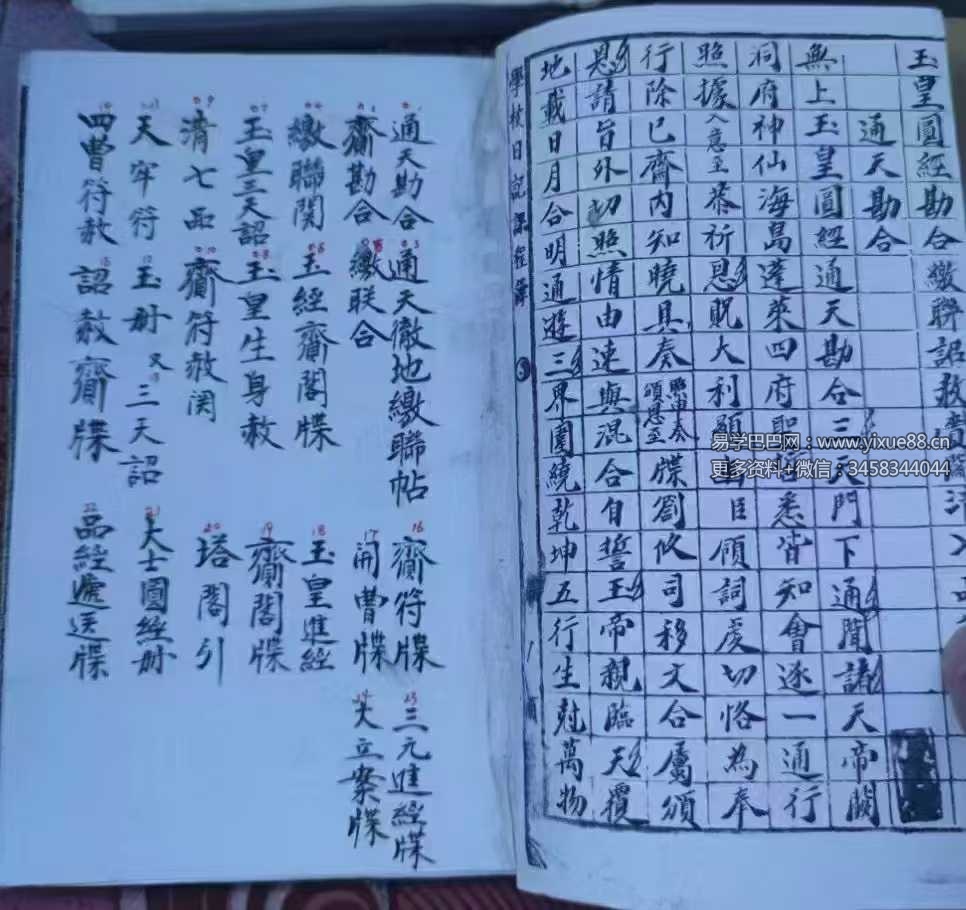 玉皇圓經勘合繳聯詔赦
通天勘合
無上玉皇圓經通天勘合三天門下通聞諸天帝闕
洞府神仙海島蓬萊四府聖哲悉皆知會逐一通行
照據入意至恭祈恩貺大利顯臣顧詞虔切恪為奉
行除已齋內知曉具奏照由奏頒恩至牒劄攸司移文合屬頒
恩請旨外切照情由速與混合自誓玉帝親臨天覆
地載日月合明通遊三界圍繞乾坤五行生尅萬物
學校日記課程簿
通天勘合
齋勘合
通天徹地繳聯帖
繳联合
繳聯関
玉經齋閣牒
玉皇三天詔
玉皇生身赦
清七品
齋符赦関
天牢符
玉册
又三天詔
四曹符赦
詔赦齋牒
齋符牒
開曹牒
玉皇進經
齋閣牒
塔閣引
大士圓經册
品經遞送牒
三元進經牒
大立案牒
易学巴巴网：www.yixue88.cn
更多资料+微信：3458344044